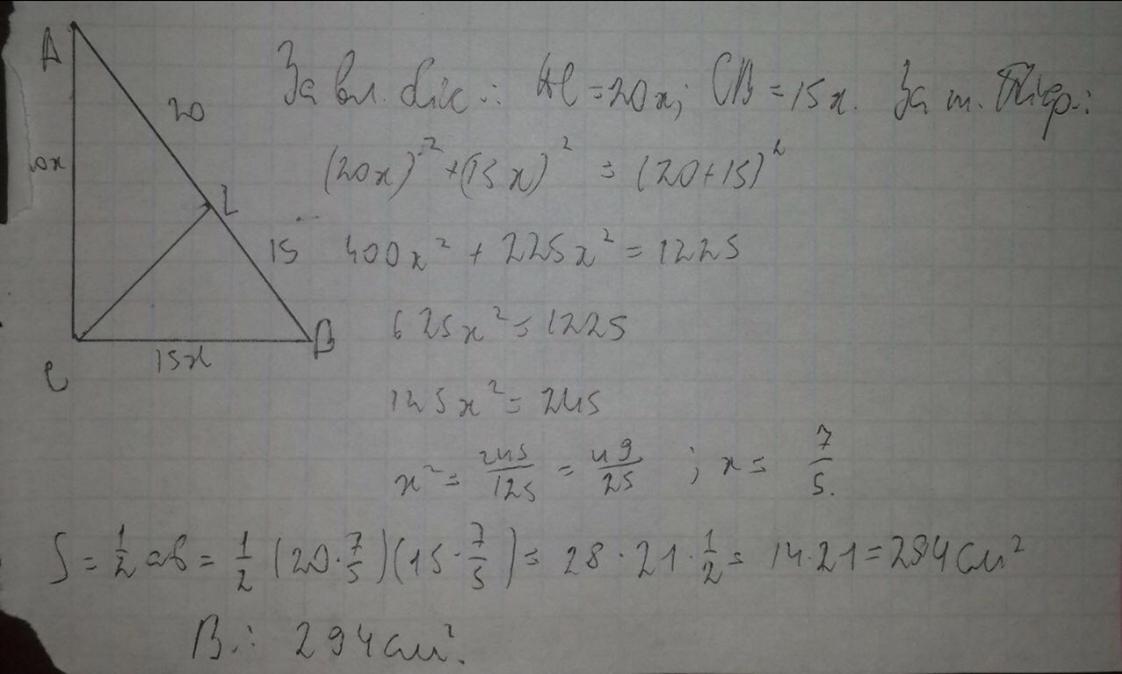 A
20
За вл. біс.: AC = 20x; CB = 15x. За т. Піф.:
0x
(20x)² + (15x)² = (20+15)²
L
15
400x² + 225x² = 1225
625x² = 1225
B
15x
C
125x² = 245
x² = 245/125 = 49/25 ; x = 7/5.
S = 1/2 ab = 1/2 (20·7/5)(15·7/5) = 28·21·1/2 = 14·21 = 294 см²
В.: 294 см².